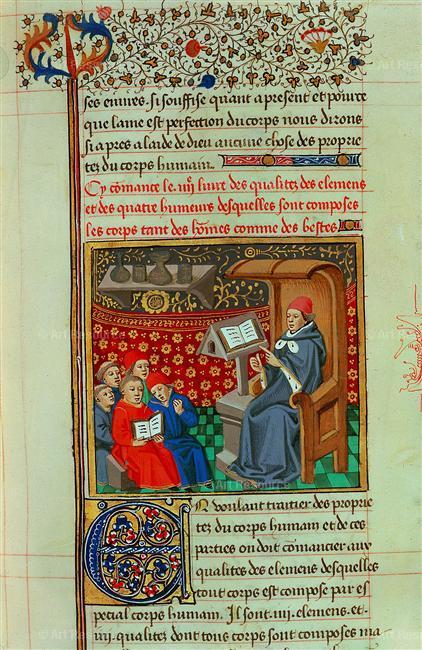 ses euures. si souffise quant a present et pource
que lame est perfection du corps nous dirons
si apres a laide de dieu aucune chose des proprie
tez du corps humain.
Cy cõmance le .iiij. liure des qualitez des elemens
et des quatre humeurs desquelles sont composes
les corps tant des hõmes comme des bestes
En voulant traitier des proprie
tez du corps humain et de ces
parties on doit cõmancier aux
qualites des elemens desquelles
tout corps est compose par es
pecial corps humain. Il sont .iiii. elemens. et
.iiii. qualitez dont tous corps sont composes ma